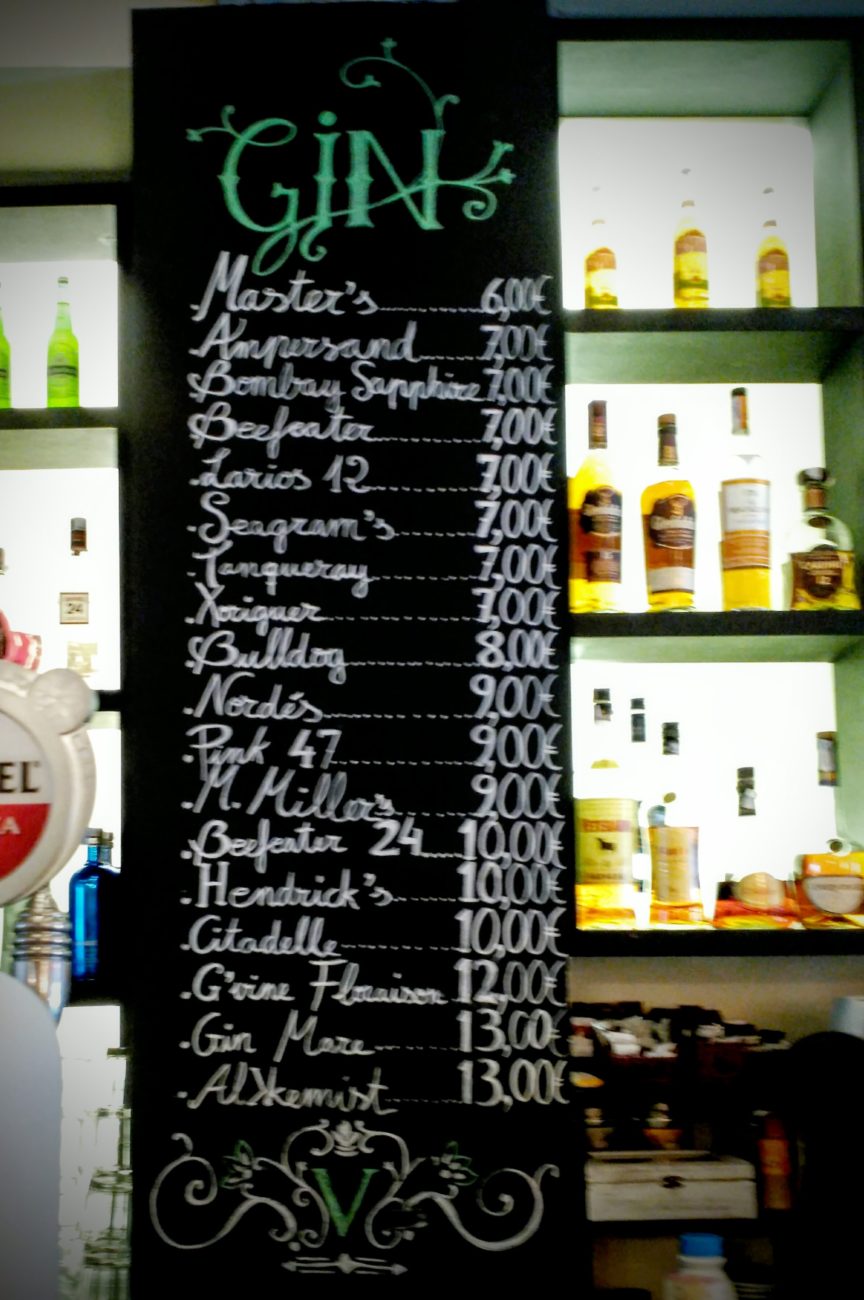 GiN
.Master's........6,00€
.Ampersand.....7,00€
.Bombay Sapphire 7,00€
.Beefeater........7,00€
.Larios 12........7,00€
.Seagram's......7,00€
.Tanqueray.......7,00€
.Xoriguer........7,00€
.Bulldog........8,00€
.Nordés........9,00€
.Pink 47........9,00€
.M. Miller's.....9,00€
.Beefeater 24...10,00€
.Hendrick's.....10,00€
.Citadelle.......10,00€
.G'vine Floraison 12,00€
.Gin Mare.......13,00€
.Alkkemist......13,00€
V
EL
24